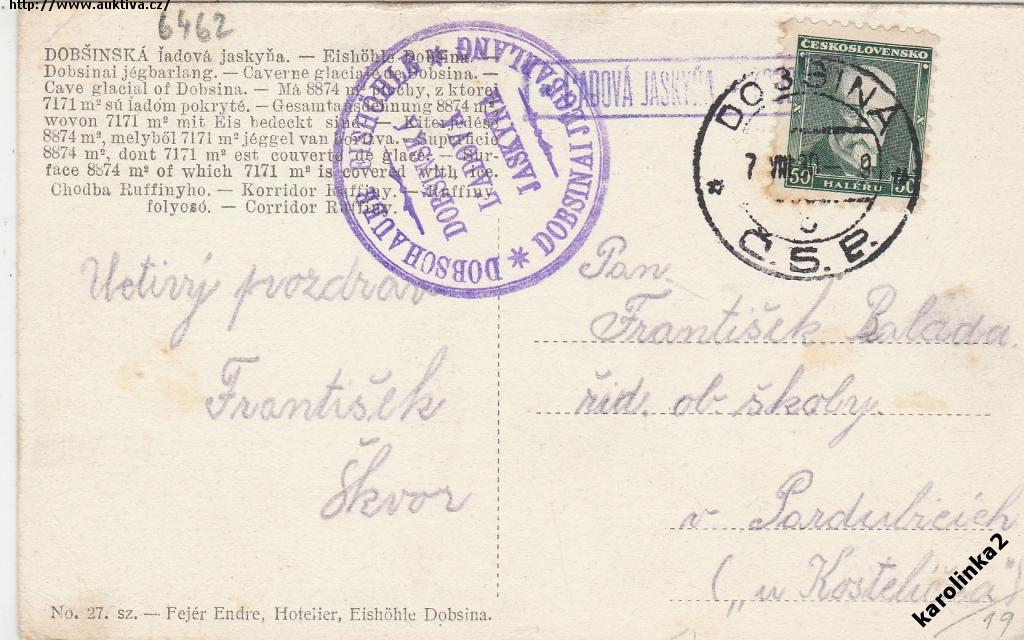 http://www.auktiva.cz/
6462
DOBŠINSKÁ ľadová jaskyňa. — Eishöhle Dobsina.
Dobsinai jégbarlang. — Caverne glaciale de Dobsina. —
Cave glacial of Dobsina. — Má 8874 m² plochy, z ktorej
7171 m² sú ľadom pokryté. — Gesamtausdehnung 8874 m²,
wovon 7171 m² mit Eis bedeckt sind. — Kiterjedése
8874 m², melyből 7171 m² jéggel van borítva. — Superficie
8874 m², dont 7171 m² est couverte de glace. — Sur-
face 8874 m² of which 7171 m² is covered with ice.
Chodba Ruffinyho. — Korridor Ruffiny. — Ruffiny
folyosó. — Corridor Ruffiny.
DOBSCHAUER EISHÖHLE * DOBSINAI JÉGBARLANG *
DOBŠINSKÁ
ĽADOVÁ
JASKYŇA
ĽADOVÁ JASKYŇA
ČESKOSLOVENSKO
50 HALÉŘŮ 50
DOBŠINÁ
7 VIII 30 — 9
Č.S.P.
Uctivý pozdrav
František
Škvor
Pan
František Balada
říd. ob. školy.
v Pardubicích
(„u Kostelíčka")
No. 27. sz. — Fejér Endre, Hotelier, Eishöhle Dobsina.
karolinka2
19